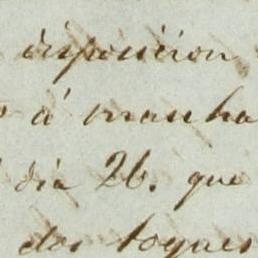 disposicion
á mancha
dia 26. que
dos toques